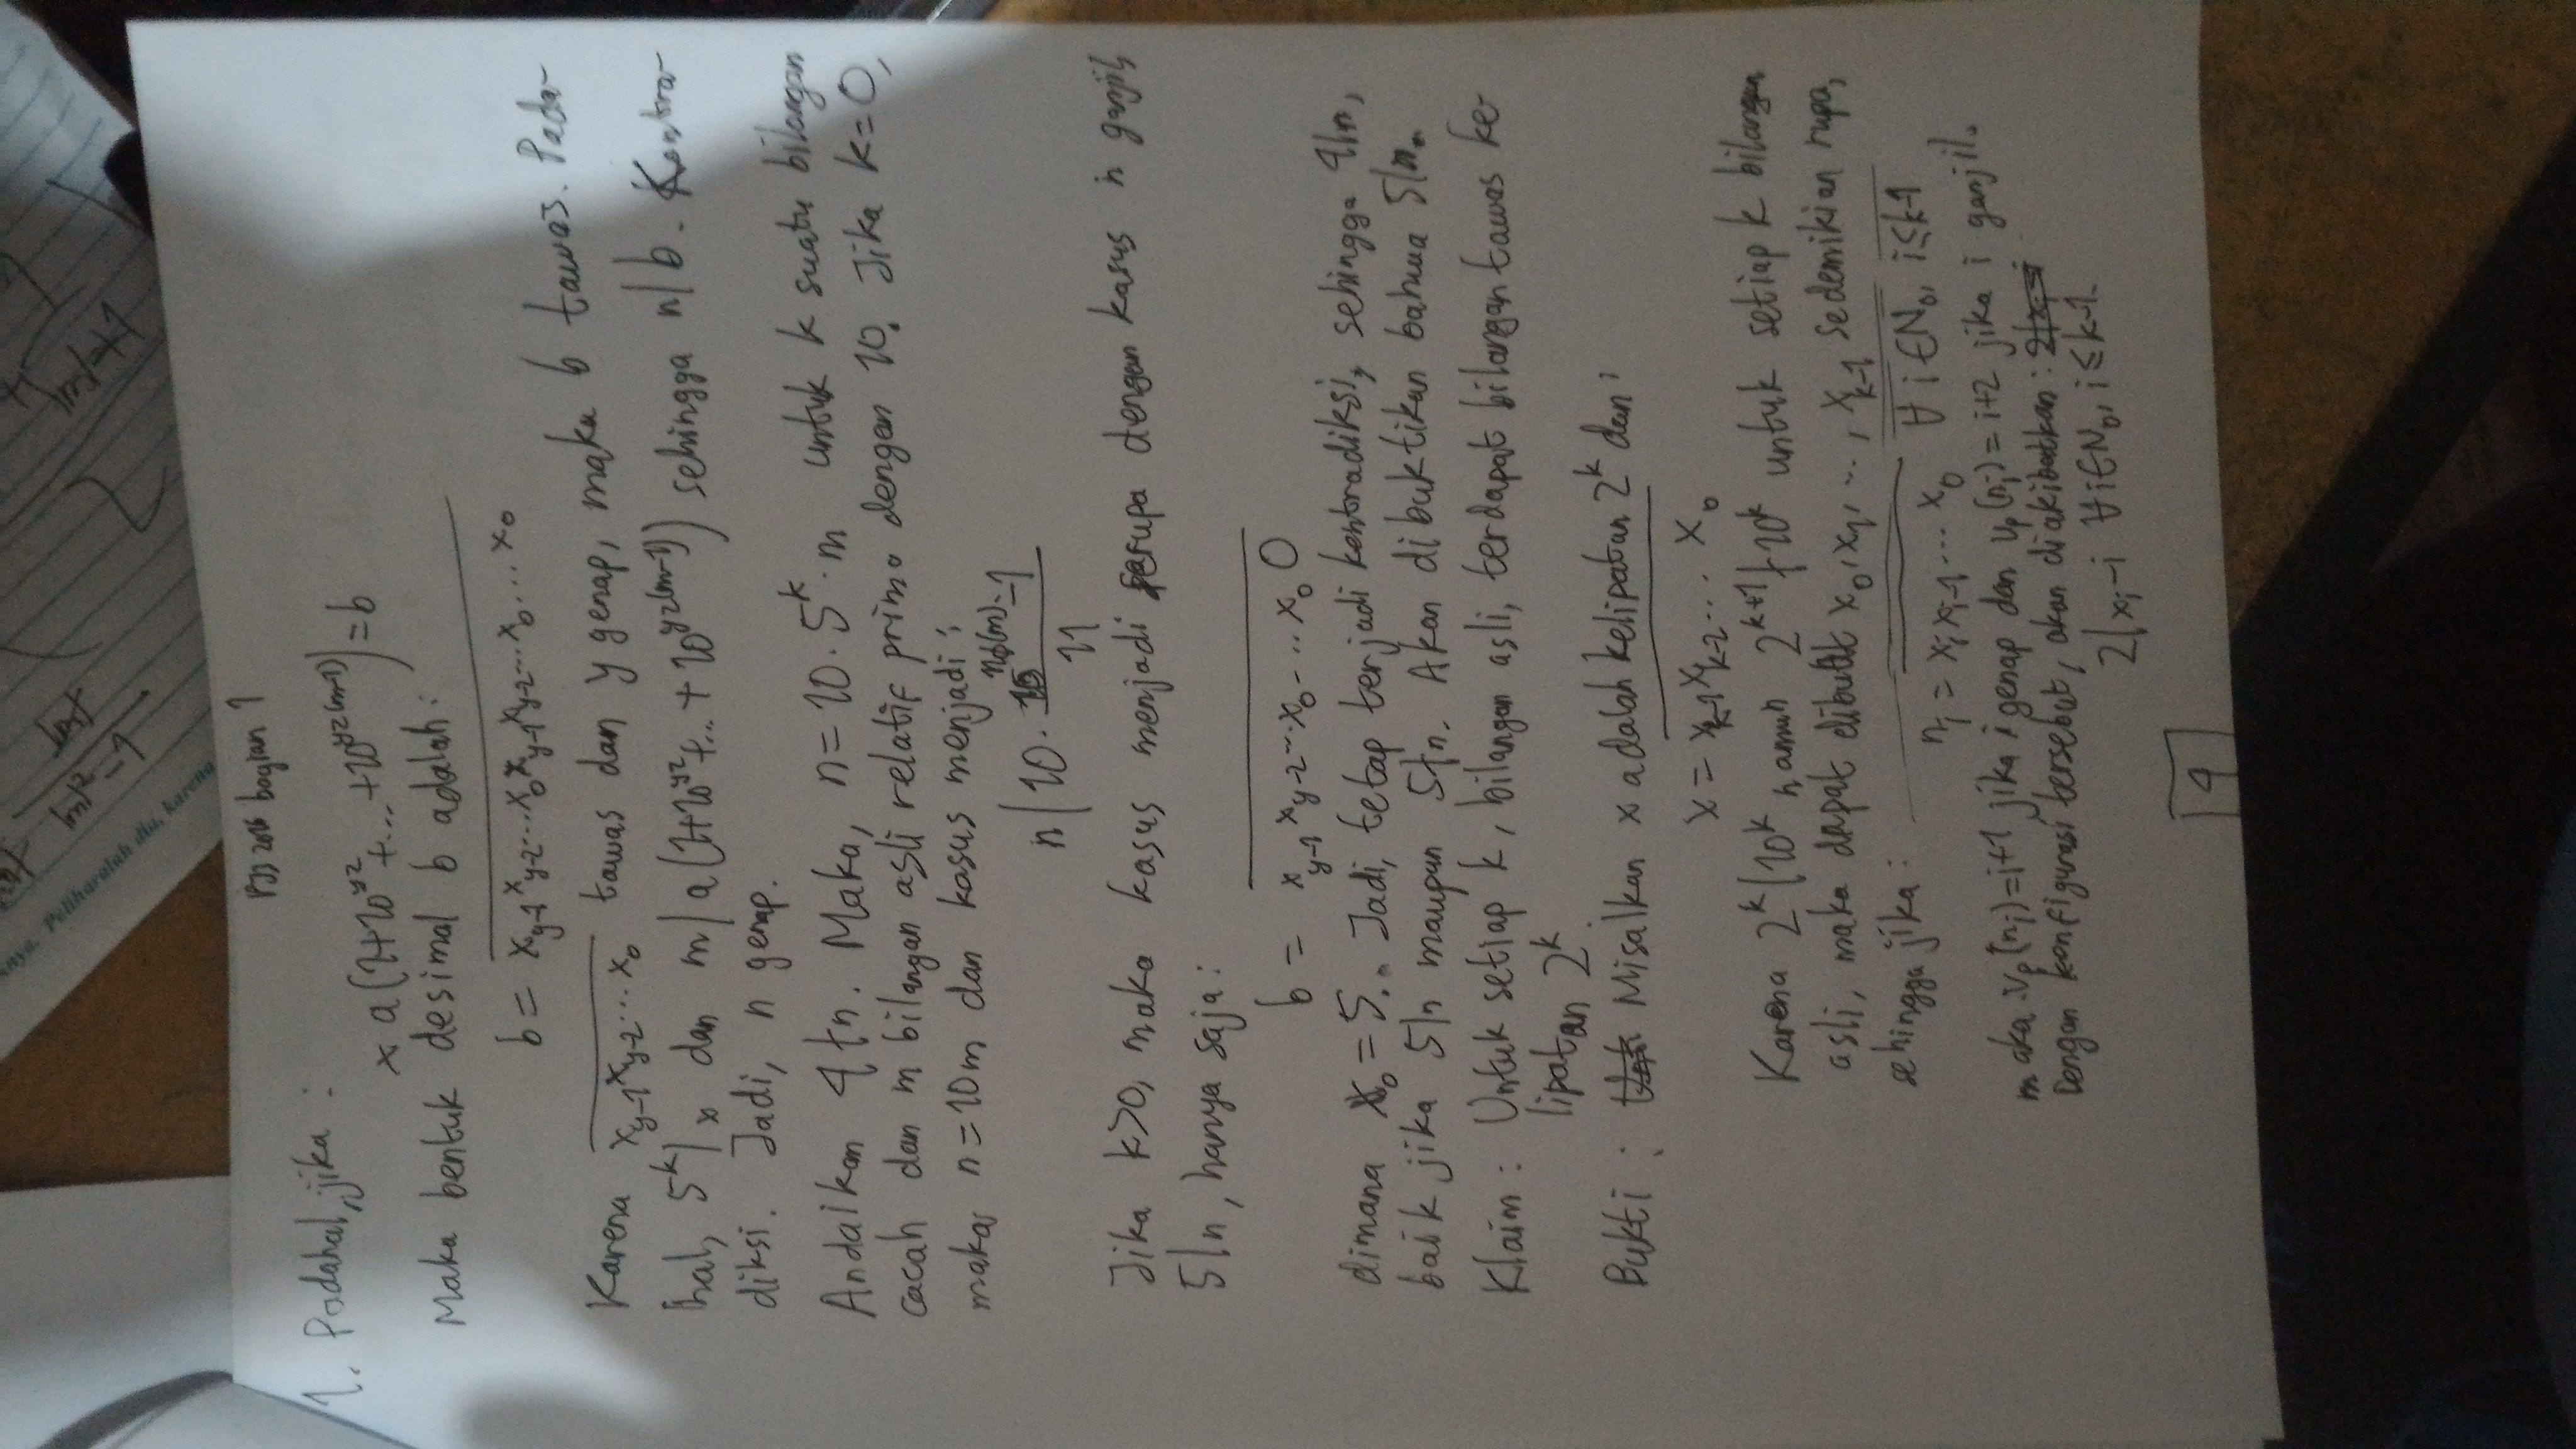 nya. Peliharalah dia, karena
|m|
|m|²-1
|m|+1
PJJ 2016 bagian 1
1. Padahal, jika :
x a(1+10^{yz}+...+10^{yz(m-1)})=b
Maka bentuk desimal b adalah:
b = \overline{x_{y-1}x_{y-2}...x_0x_{y-1}x_{y-2}...x_0...x_0}
Karena \overline{x_{y-1}x_{y-2}...x_0} tawas dan y genap, maka b tawas. Pada-
hal, 5^k|x dan m|a(1+10^{yz}+...+10^{yz(m-1)}) sehingga n|b. Kontra-
diksi. Jadi, n genap.
Andaikan 4∤n. Maka, n=10·5^k·m untuk k suatu bilangan
cacah dan m bilangan asli relatif prima dengan 10. Jika k=0,
maka n=10m dan kasus menjadi :
n|10·\frac{10^{nϕ(m)}-1}{11}
Jika k>0, maka kasus menjadi serupa dengan kasus n ganjil,
5|n, hanya saja:
b = \overline{x_{y-1}x_{y-2}...x_0...x_0 0}
dimana x_0=5. Jadi, tetap terjadi kontradiksi, sehingga 4|n,
baik jika 5|n maupun 5∤n. Akan dibuktikan bahwa 5|n.
Klaim : Untuk setiap k, bilangan asli, terdapat bilangan tawas ke-
lipatan 2^k.
Bukti : Misalkan x adalah kelipatan 2^k dan :
x = \overline{x_{k-1}x_{k-2}... x_0}
Karena 2^k|10^k namun 2^{k+1}∤10^k untuk setiap k bilangan
asli, maka dapat dibuat x_0,x_1,...,x_{k-1} sedemikian rupa,
sehingga jika :
n_i = \overline{x_ix_{i-1}...x_0} ∀i∈N_0, i≤k-1
maka :v_p(n_i)=i+1 jika i genap dan v_p(n_i)=i+2 jika i ganjil.
Dengan konfigurasi tersebut, akan diakibatkan :
2|x_i-i ∀i∈N_0, i≤k-1.
4